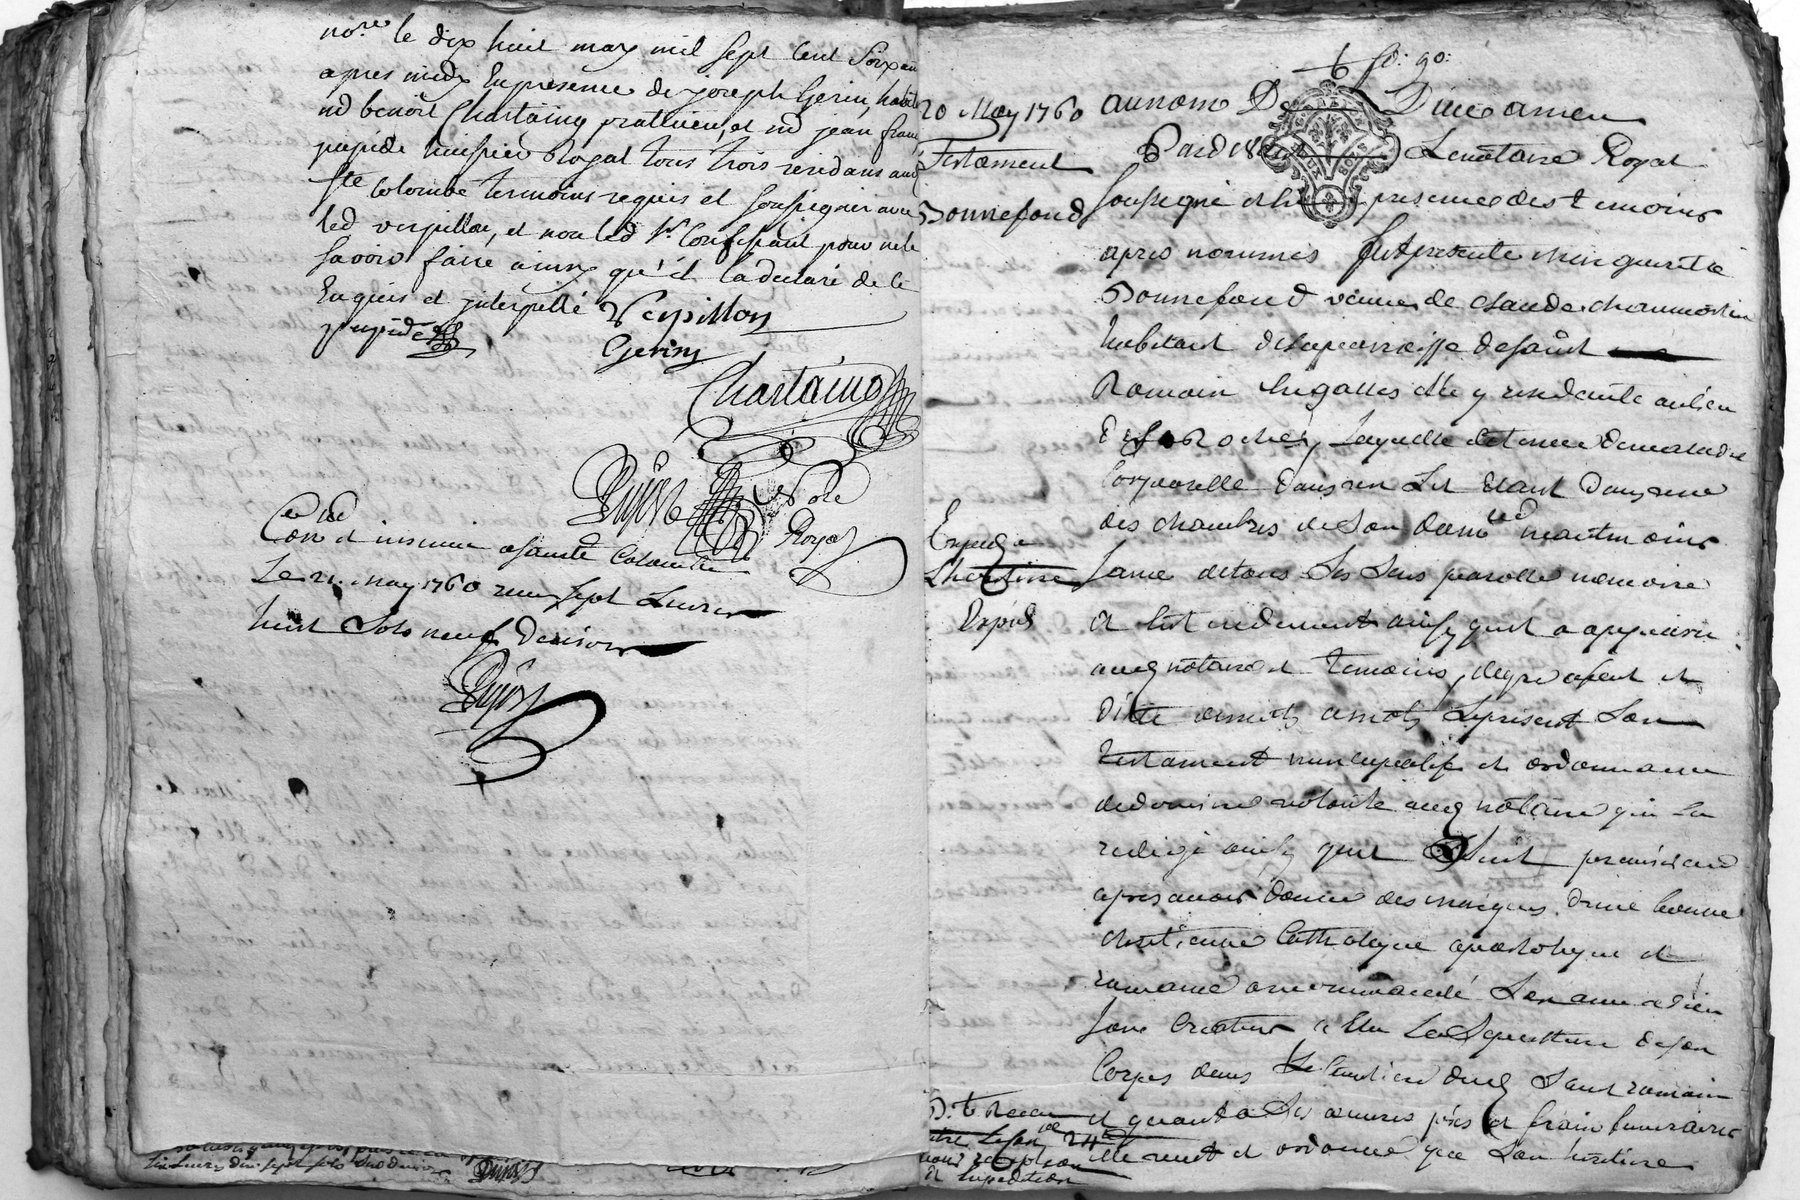 no.re le dix huit may mil sept cent soixan
apres midy En presence de joseph Gerin, habit
nd benoit Chartaing pratticien, et nd jean fran
pupide huissier Royal tous trois residans aud
ste colombe temoins requis et soussignés avec
led verpillon, et non led Sr Confessant pour ne le
savoir faire ainsy qu'il la declaré de ce
Enquis et jnterpellé Verpillon
pupide
Gerin
Chartaing
Dujast Nore
Royal
Con.e et insinué a sainte Colombe
Le 21. May 1760 recu sept Livres
huit sols neuf deniers
Dujast
fo: 90:
20 May 1760
Testament
Bonnefond
Expedié
Lheritiere
Expié
au nom De Dieu amen
Pardevant Le notaire Royal
soussigné et En presence des temoins
apres nommés fut presente Marguerite
Bonnefond veuve de claude chaumartin
habitant de la parroisse de saint
Romain En galles elle y residante au lieu
de Rocher, Laquelle detenue de maladie
Corporelle dans un Lit Etant dans une
des chambres de son dom.le neantmoins
saine de tous Ses Sens parolle memoire
et Entendement ainsy quil a apparu
aud notaire et temoins, de gré a fait et
dicté de mots a mots Le present Son
testament nuncupatif et ordonnance
de derniere volonté aud notaire qui la
redigé ainsy que Suit premierement
apres avoir donné des marques d'une bonne
chretienne Catholique apostolique et
romaine a recommandé Son ame a dieu
Son Createur a Elu La Sepulture de son
Corps dans Le Cimetiere dud Saint romain
et quant a Ses œuvres pies et fraix funeraires
elle remet et ordonne que Son heritiere
24
Expedition